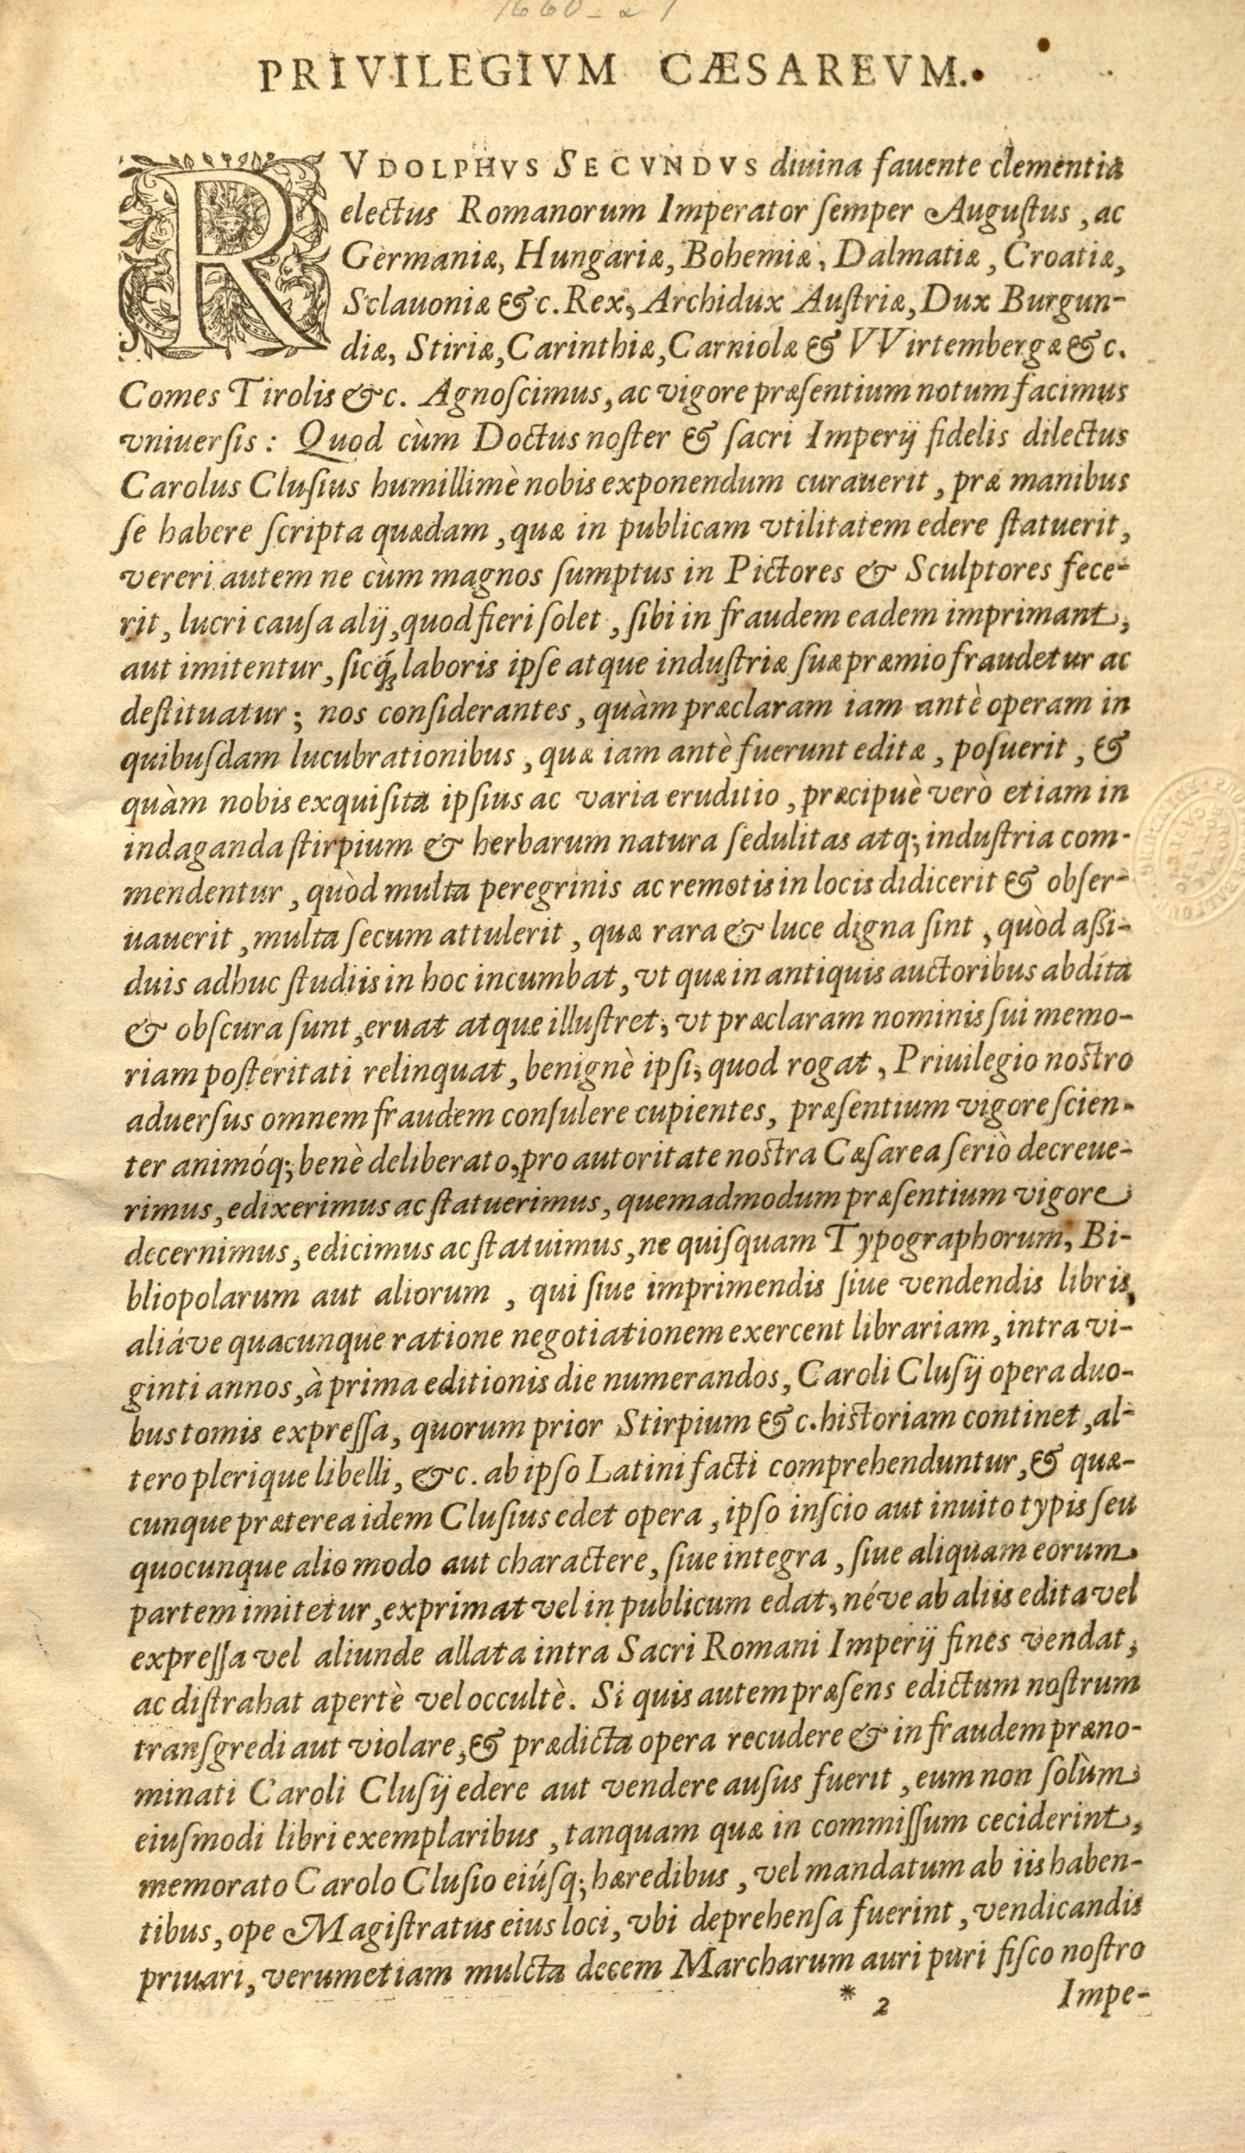 PRIVILEGIVM CÆSAREVM.
RVDOLPHVS SECVNDVS diuina fauente clementia
electus Romanorum Imperator ſemper Auguſtus, ac
Germaniæ, Hungariæ, Bohemiæ, Dalmatiæ, Croatiæ,
Sclauoniæ &c. Rex, Archidux Auſtriæ, Dux Burgun-
diæ, Stiriæ, Carinthiæ, Carniolæ & VVirtembergæ &c.
Comes Tirolis &c. Agnoſcimus, ac vigore præſentium notum facimus
vniuerſis: Quod cùm Doctus noſter & ſacri Imperij fidelis dilectus
Carolus Cluſius humillimè nobis exponendum curauerit, præ manibus
ſe habere ſcripta quædam, quæ in publicam vtilitatem edere ſtatuerit,
vereri autem ne cùm magnos ſumptus in Pictores & Sculptores fece-
rit, lucri cauſa alij, quod fieri ſolet, ſibi in fraudem eadem imprimant,
aut imitentur, ſicq́; laboris ipſe atque induſtriæ ſuæ præmio fraudetur ac
deſtituatur; nos conſiderantes, quàm præclaram iam antè operam in
quibuſdam lucubrationibus, quæ iam antè fuerunt editæ, poſuerit, &
quàm nobis exquiſita ipſius ac varia eruditio, præcipuè verò etiam in
indaganda ſtirpium & herbarum natura ſedulitas atq; induſtria com-
mendentur, quòd multa peregrinis ac remotis in locis didicerit & obſer-
uauerit, multa ſecum attulerit, quæ rara & luce digna ſint, quòd aßi-
duis adhuc ſtudiis in hoc incumbat, vt quæ in antiquis auctoribus abdita
& obſcura ſunt, eruat atque illuſtret; vt præclaram nominis ſui memo-
riam poſteritati relinquat, benignè ipſi, quod rogat, Priuilegio noſtro
aduerſus omnem fraudem conſulere cupientes, præſentium vigore ſcien-
ter animóq; benè deliberato, pro autoritate noſtra Cæſarea ſeriò decreue-
rimus, edixerimus ac ſtatuerimus, quemadmodum præſentium vigore
decernimus, edicimus ac ſtatuimus, ne quiſquam Typographorum, Bi-
bliopolarum aut aliorum, qui ſiue imprimendis ſiue vendendis libris,
aliáve quacunque ratione negotiationem exercent librariam, intra vi-
ginti annos, à prima editionis die numerandos, Caroli Cluſij opera duo-
bus tomis expreſſa, quorum prior Stirpium &c. hiſtoriam continet, al-
tero plerique libelli, &c. ab ipſo Latini facti comprehenduntur, & quæ-
cunque præterea idem Cluſius edet opera, ipſo inſcio aut inuito typis ſeu
quocunque alio modo aut charactere, ſiue integra, ſiue aliquam eorum
partem imitetur, exprimat vel in publicum edat, néve ab aliis edita vel
expreſſa vel aliunde allata intra Sacri Romani Imperij fines vendat,
ac diſtrahat apertè vel occultè. Si quis autem præſens edictum noſtrum
tranſgredi aut violare, & prædicta opera recudere & in fraudem præno-
minati Caroli Cluſij edere aut vendere auſus fuerit, eum non ſolùm
eiuſmodi libri exemplaribus, tanquam quæ in commiſſum ceciderint,
memorato Carolo Cluſio eiúſq; hæredibus, vel mandatum ab iis haben-
tibus, ope Magiſtratus eius loci, vbi deprehenſa fuerint, vendicandis
priuari, verumetiam mulcta decem Marcharum auri puri fiſco noſtro
* 2 Impe-